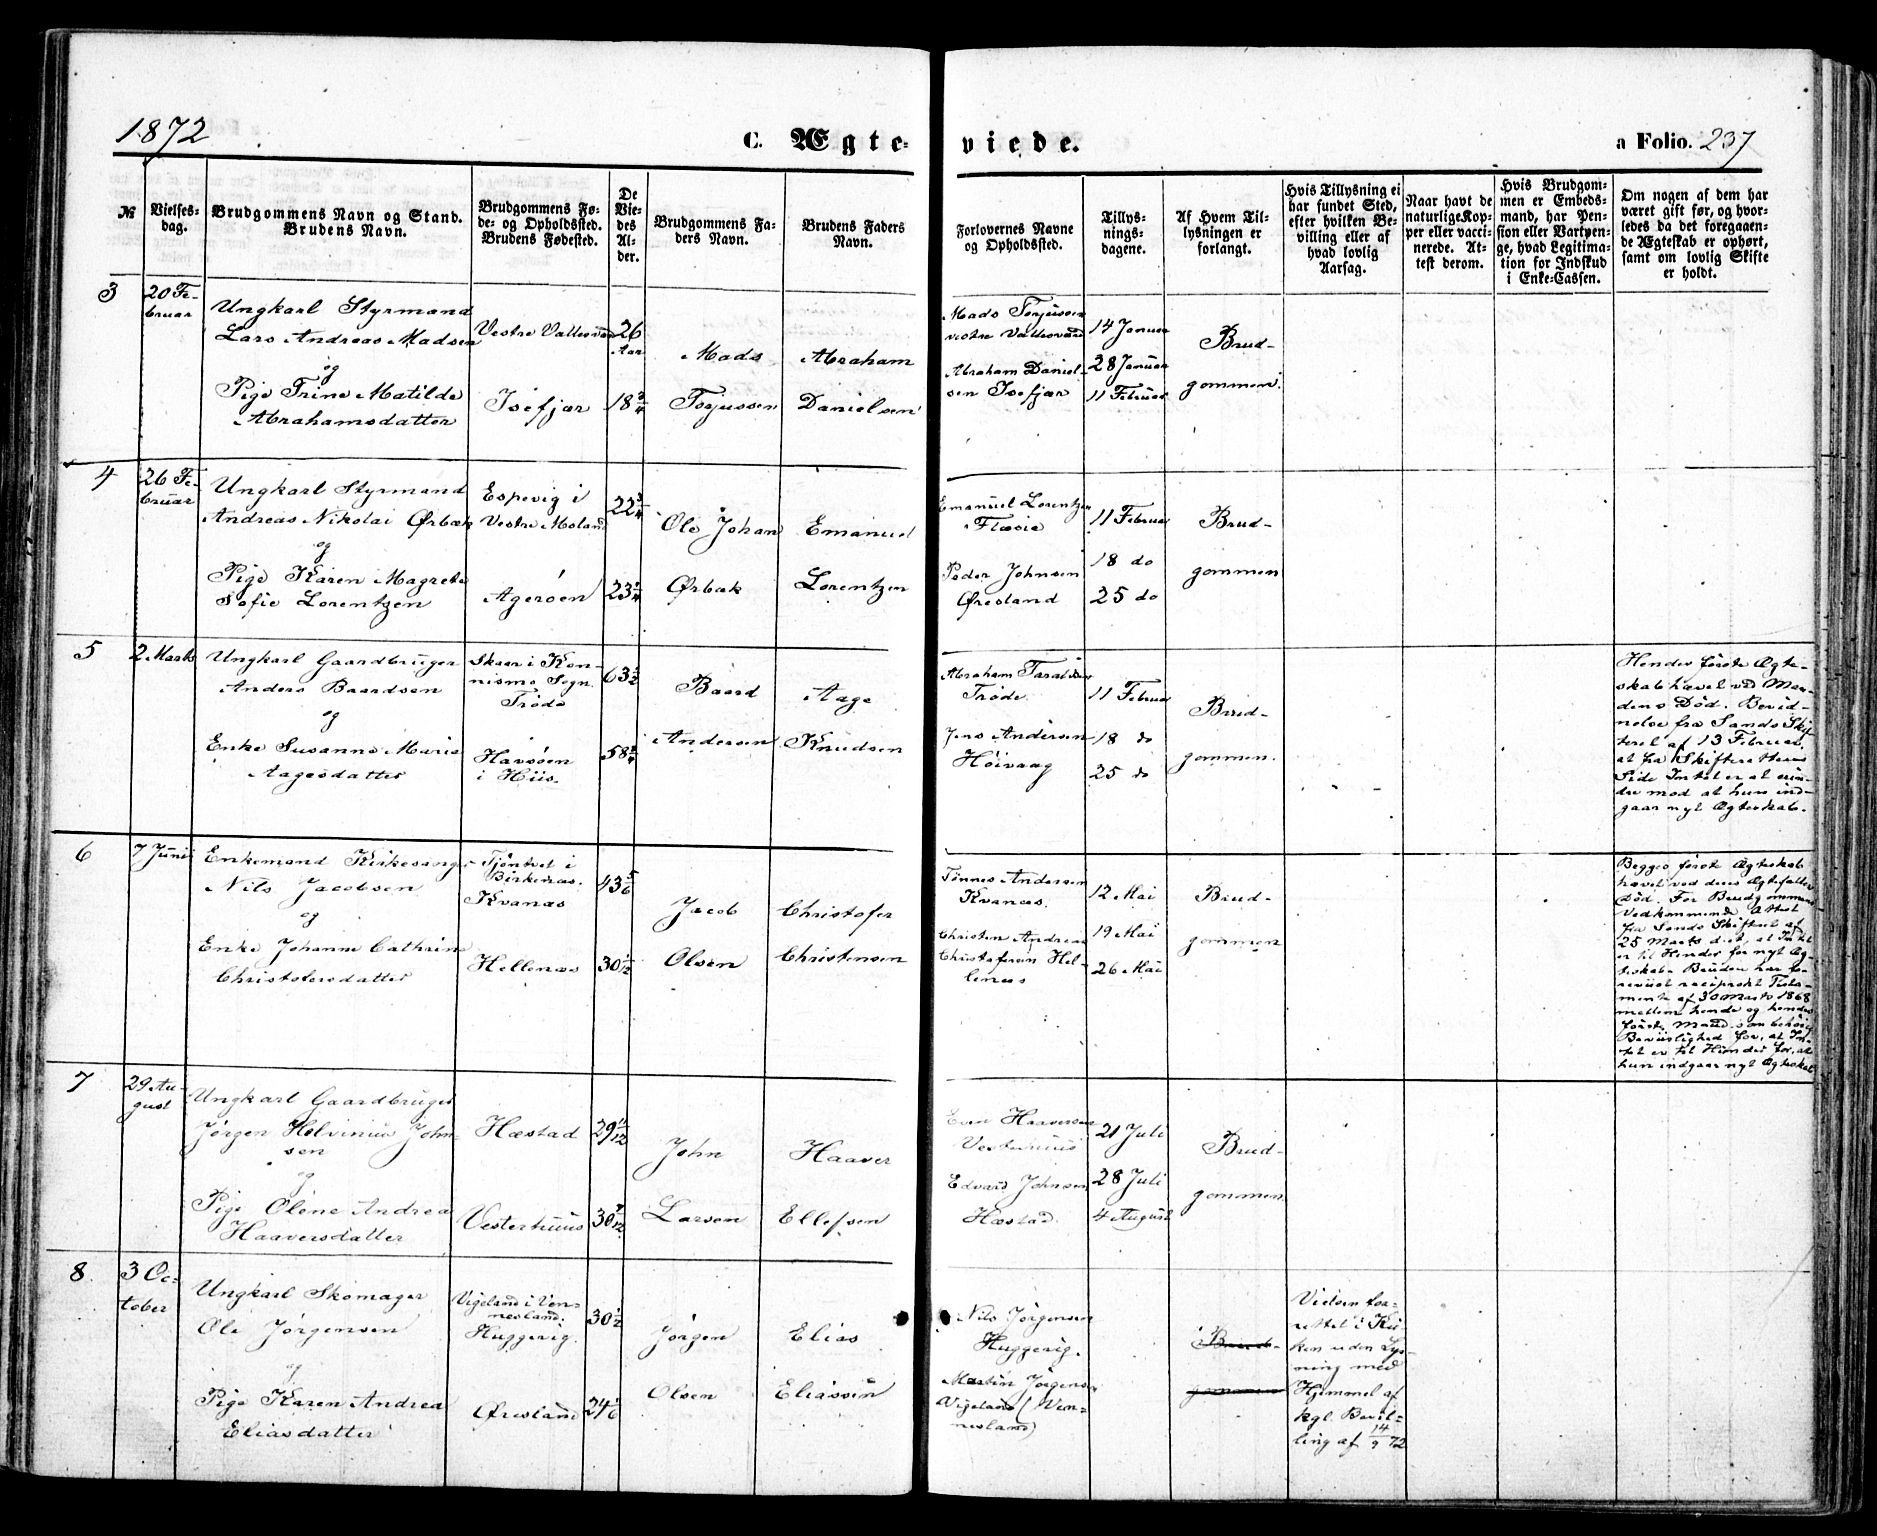 1872
C. Ægteviede.
a Folio. 237
№
Vielsesdag.
Brudgommens Navn og Stand.
Brudens Navn.
Brudgommens Føde- og Opholdssted.
Brudens Fødested.
De Viedes Alder.
Brudgommens Faders Navn.
Brudens Faders Navn.
Forlovernes Navne og Opholdssted.
Tillysningsdagene.
Af Hvem Tillysningen er forlangt.
Hvis Tillysning ei har fundet Sted, efter hvilken Bevilling eller af hvad lovlig Aarsag.
Naar havt de naturlige Kopper eller vaccinerede. Attest derom.
Hvis Brudgommen er Embedsmand, har Pension eller Vartpenge, hvad Legitimation for Indskud i Enke-Cassen.
Om nogen af dem har været gift før, og hvorledes da det foregaaende Ægteskab er ophørt, samt om lovlig Skifte er holdt.
3
20 Februar
Ungkarl Styrmand
Lars Andreas Madsen
og
Pige Trine Matilde
Abrahamsdatter
Vestre Vallesvær
Isefjær
26 Aar
18 3/4
Mads
Torjussen
Abraham
Danielsen
Mads Torjussen
vestre Vallesværd
Abraham Daniel-
sen Isefjær
14 Januar
28 Januar
11 Februar
Brud-
gommen
4
26 Februar
Ungkarl Styrmand
Andreas Nikolai Ørbæk
og
Pige Karen Magrete
Sofie Lorentzen
Espevig i
Vestre Moland
Agerøen
22 3/4
23 1/4
Ole Johan
Ørbæk
Emanuel
Lorentzen
Emanuel Lorentzen
Peder Johnsen
Øresland
11 Februar
18 do
25 do
Brud-
gommen
5
2 Marts
Ungkarl Gaardbruger
Anders Baardsen
og
Enke Susanne Marie
Aagesdatter
Skaar i Kon-
nismo Sogn.
Trøde
Havsøen
i Hiis.
63 1/2
58 3/4
Baard
Andersen
Aage
Knudsen
Abraham Taraldsen
Trøde.
Jens Andersen
Høivaag
11 Februar
18 do
25 do
Brud-
gommen.
Hendes første Ægte-
skab hævet ved Man-
dens Død. Bevid-
nelse fra Sands Skif-
teret af 13 Februar,
at fra Skifterettens
Side Intet er at erin-
dre mod at hun ind-
gaar nyt Ægteskab.
6
7 Juni
Enkemand Kirkesanger
Nils Jacobsen
og
Enke Johanne Cathrine
Christofersdatter
Tjøntvet i
Birkenæs.
Kvanæs
Hellenæs
43 5/6
30 1/12
Jacob
Olsen
Christofer
Christensen
Tønnes Andersen
Kvanæs.
Christen Andreas
Christofersen Hel-
lenæs
12 Mai
19 Mai
26 Mai
Brud-
gommen
Begges første Ægteskab
hævet ved deres Ægtefælles
Død. For Brudgommens
Vedkommende Attest
fra Sands Skifteret af
25 Marts d.A., at Intet
er til Hinder for nyt Æg-
teskab. Bruden har fo-
reviist reciprokt Testa-
mente af 30 Marts 1868
mellem hende og hendes
første Mand som behørig
Beviislighed for, at In-
tet er til Hinder for, at
hun indgaar nyt Ægteskab
7
29 August
Ungkarl Gaardbruger
Jørgen Helvinius John-
sen
og
Pige Olene Andrea
Haaversdatter
Hæstad
Vesterhuus
29 11/12
30 7/12
John
Larsen
Haaver
Ellefsen
Even Haaversen
Vesterhuus
Edvard Johnsen
Hæstad.
21 Juli
28 Juli
4 August
Brud-
gommen
8.
3 October
Ungkarl Skomager
Ole Jørgensen
og
Pige Karen Andrea
Eliasdatter
Vigeland i Ven-
nesland.
Huggevig.
Øresland
30 1/2
24 1/6
Jørgen
Olsen
Elias
Eliassen
Nils Jørgensen
Huggevig.
Martin Jørgensen
Vigeland (Ven-
nesland)
Brud-
gommen
Vielsen for-
rettet i Kir-
ken uden Lys-
ning med
Hjemmel af
kgl. Bevil-
ling af 14/9 72